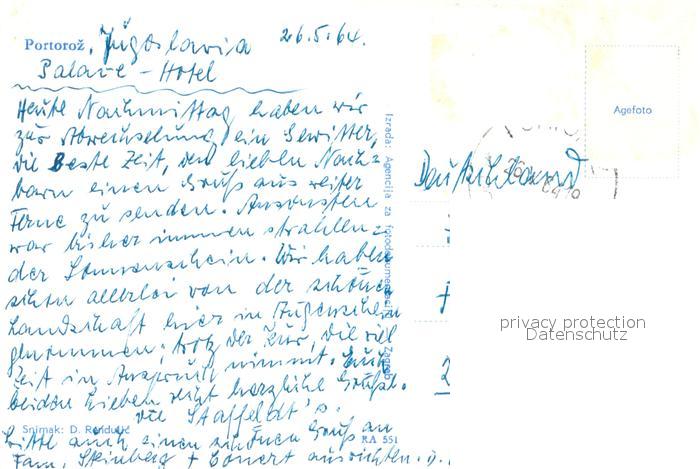 Portorož, Jugoslavia 26.5.64.
Palace-Hotel
Heute Nachmittag haben wir
zur Abwechselung ein Gewitter,
die Beste Zeit, den lieben Nach=
barn einen Gruß aus weiter
Ferne zu senden. Ansonsten
war bisher immer strahlen=
der Sonnenschein. Wir haben
schon allerlei von der schönen
Landschaft hier in Augenschein
genommen, trotz der Kur, die viel
Zeit in Anspruch nimmt. Euch
beiden Lieben recht herzliche Grüße.
die Staffeldt's.
Bitte auch einen schönen Gruß an
Fam. Steinberg + ausrichten.
Snimak: D.
RA 551
Izrada: Agencija za fotodokumentaciju Zagreb
Agefoto
Deutschland
privacy protection
Datenschutz